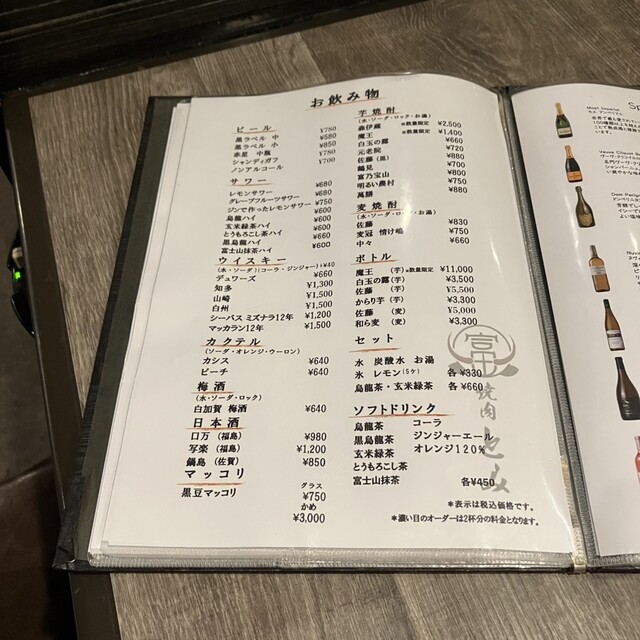 お飲み物
ビール
黒ラベル 中 ¥780
黒ラベル 小 ¥580
赤星 中瓶 ¥850
シャンディガフ ¥780
ノンアルコール ¥700
サワー
レモンサワー ¥680
グレープフルーツサワー ¥680
ジンで作ったレモンサワー ¥750
烏龍ハイ ¥600
玄米緑茶ハイ ¥600
とうもろこし茶ハイ ¥600
黒烏龍ハイ ¥600
富士山抹茶ハイ ¥600
ウイスキー
(水・ソーダ)(コーラ・ジンジャー)+¥40
デュワーズ ¥660
知多 ¥1,300
山崎 ¥1,500
白州 ¥1,500
シーバス ミズナラ12年 ¥1,200
マッカラン12年 ¥1,500
カクテル
(ソーダ・オレンジ・ウーロン)
カシス ¥640
ピーチ ¥640
梅酒
(水・ソーダ・ロック)
白加賀 梅酒 ¥640
日本酒
口万 (福島) ¥980
写楽 (福島) ¥1,200
鍋島 (佐賀) ¥850
マッコリ
黒豆マッコリ グラス ¥750
かめ ¥3,000
芋焼酎
(水・ソーダ・ロック・お湯)
森伊蔵 ※数量限定 ¥2,500
魔王 ※数量限定 ¥1,400
白玉の露 ¥660
元老院 ¥720
佐藤 (黒) ¥880
鶴見 ¥700
富乃宝山 ¥880
明るい農村 ¥750
萬膳 ¥880
麦焼酎
(水・ソーダ・ロック・お湯)
佐藤 ¥830
麦冠 情け嶋 ¥750
中々 ¥660
ボトル
魔王 (芋) ※数量限定 ¥11,000
白玉の露 (芋) ¥3,500
佐藤 (芋) ¥5,500
からり芋 (芋) ¥3,300
佐藤 (麦) ¥5,000
和ら麦 (麦) ¥3,300
セット
水 炭酸水 お湯
氷 レモン(5ケ) 各¥330
烏龍茶・玄米緑茶 各¥660
ソフトドリンク
烏龍茶 コーラ
黒烏龍茶 ジンジャーエール
玄米緑茶 オレンジ120%
とうもろこし茶
富士山抹茶 各¥450
*表示は税込価格です。
*濃い目のオーダーは2杯分の料金となります。
富士
焼肉
Sp
Moët Impérial
Veuve Clicquot
Dom Perign